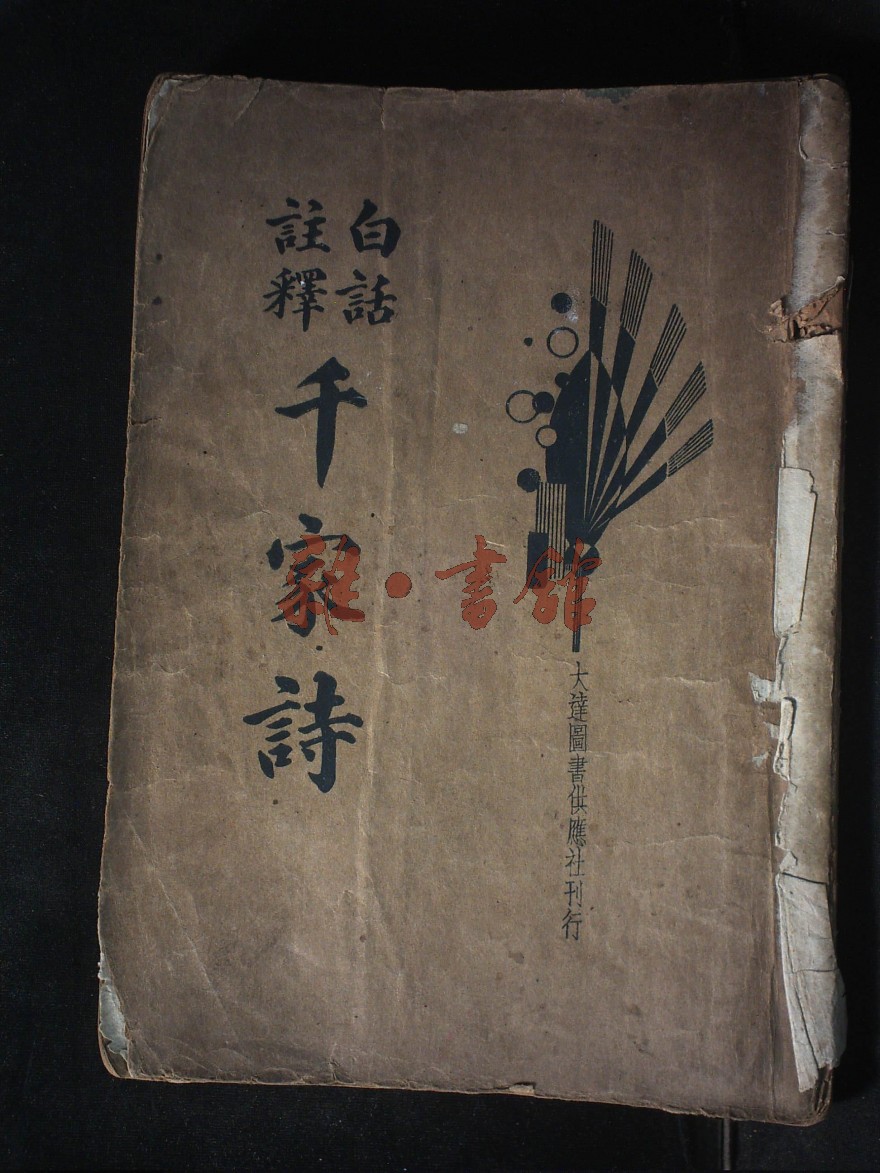 白話
註釋
千家詩
大達圖書供應社刊行
雜·書館